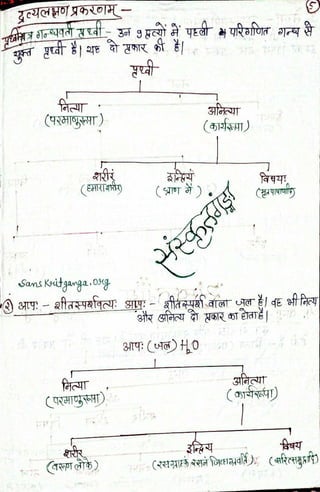 द्रव्यलक्षणप्रकरणम् -
5
तत्र गन्धवती पृथ्वी - उन 9 द्रव्यों में पहली परिगणित गन्ध से
युक्त पृथ्वी है। यह दो प्रकार की है।
पृथ्वी
नित्या अनित्या
(परमाणुरूपा) (कार्यरूपा)
शरीरं इन्द्रियं विषयः
(हमारा शरीर) (घ्राण में)
संस्कृतगङ्गा
Sanskritganga.org
2) आपः - शीतस्पर्शवत्यः आपः - शीतस्पर्श वाला जल है। वह भी नित्य
और अनित्य दो प्रकार का होता है।
आपः (जल) H2O
नित्या अनित्या
(परमाणुरूपा) (कार्यरूपा)
शरीर इन्द्रिय विषय
(वरुण लोके) (सरित्समुद्रादि)